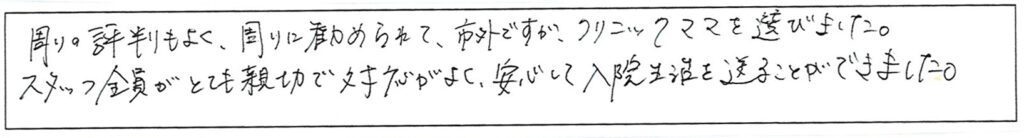 周りの評判もよく、周りに勧められて、市外ですが、クリニックママを選びました。
スタッフ全員がとても親切で対応がよく、安心して入院生活を送ることができました。